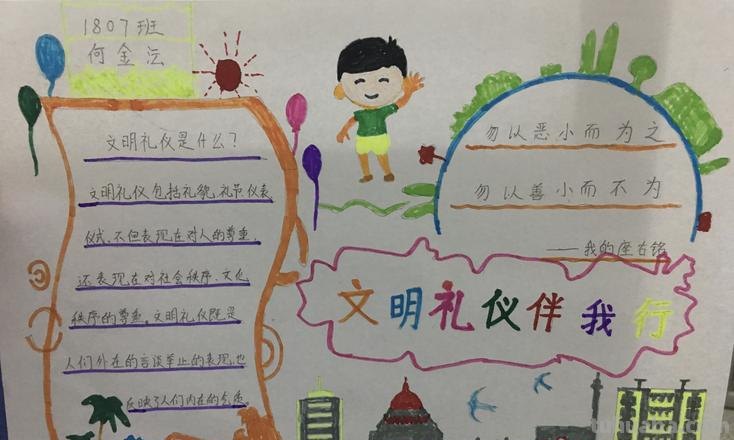 1807班
何金沄
文明礼仪是什么？
文明礼仪包括礼貌、礼节、仪表
仪式，不但表现在对人的尊重，
还表现在对社会秩序、文化
秩序的尊重。文明礼仪既是
人们外在的言谈举止的表现，也
反映了人们内在的气质。
勿以恶小而为之
勿以善小而不为
——我的座右铭
文明礼仪伴我行